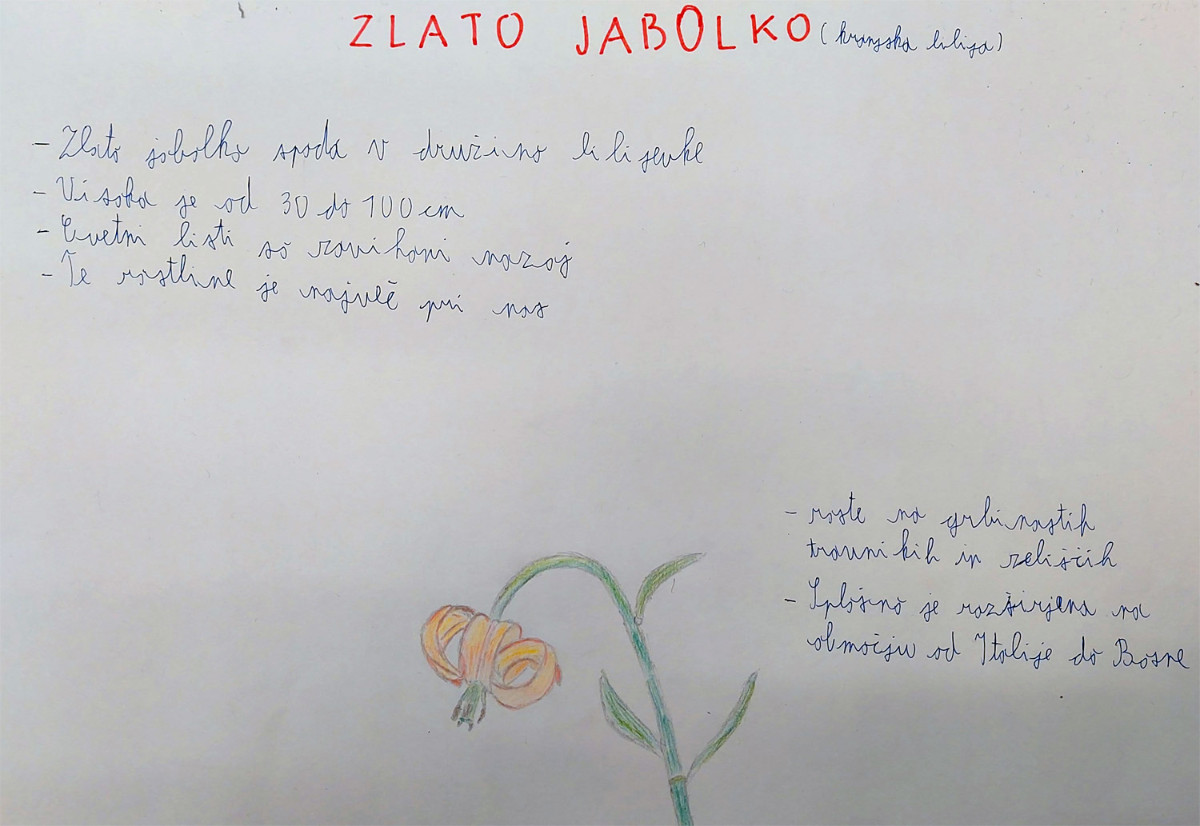 ZLATO JABOLKO (kranjska lilija)
- Zlato jabolko spada v družino lilijevke
- Visoka je od 30 do 100 cm
- Cvetni listi so zavihani nazaj
- Te rastline je največ pri nas
- raste na grbinastih
travnikih in zeliščih
- Splošno je razširjena na
območju od Italije do Bosne